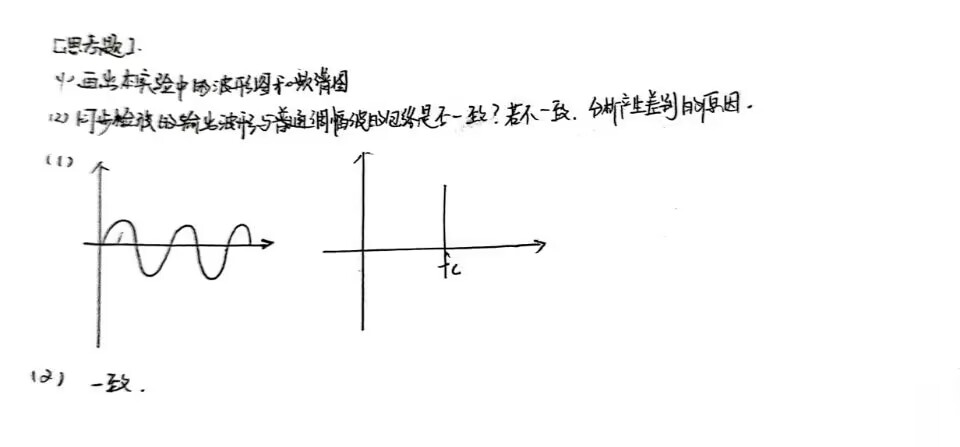 [思考题].
(1) 画出本实验中的波形图和频谱图
(2) 同步检波的输出波形与普通调幅波的包络是否一致?若不一致.分析产生差别的原因.
(1)
fc
(2) 一致.